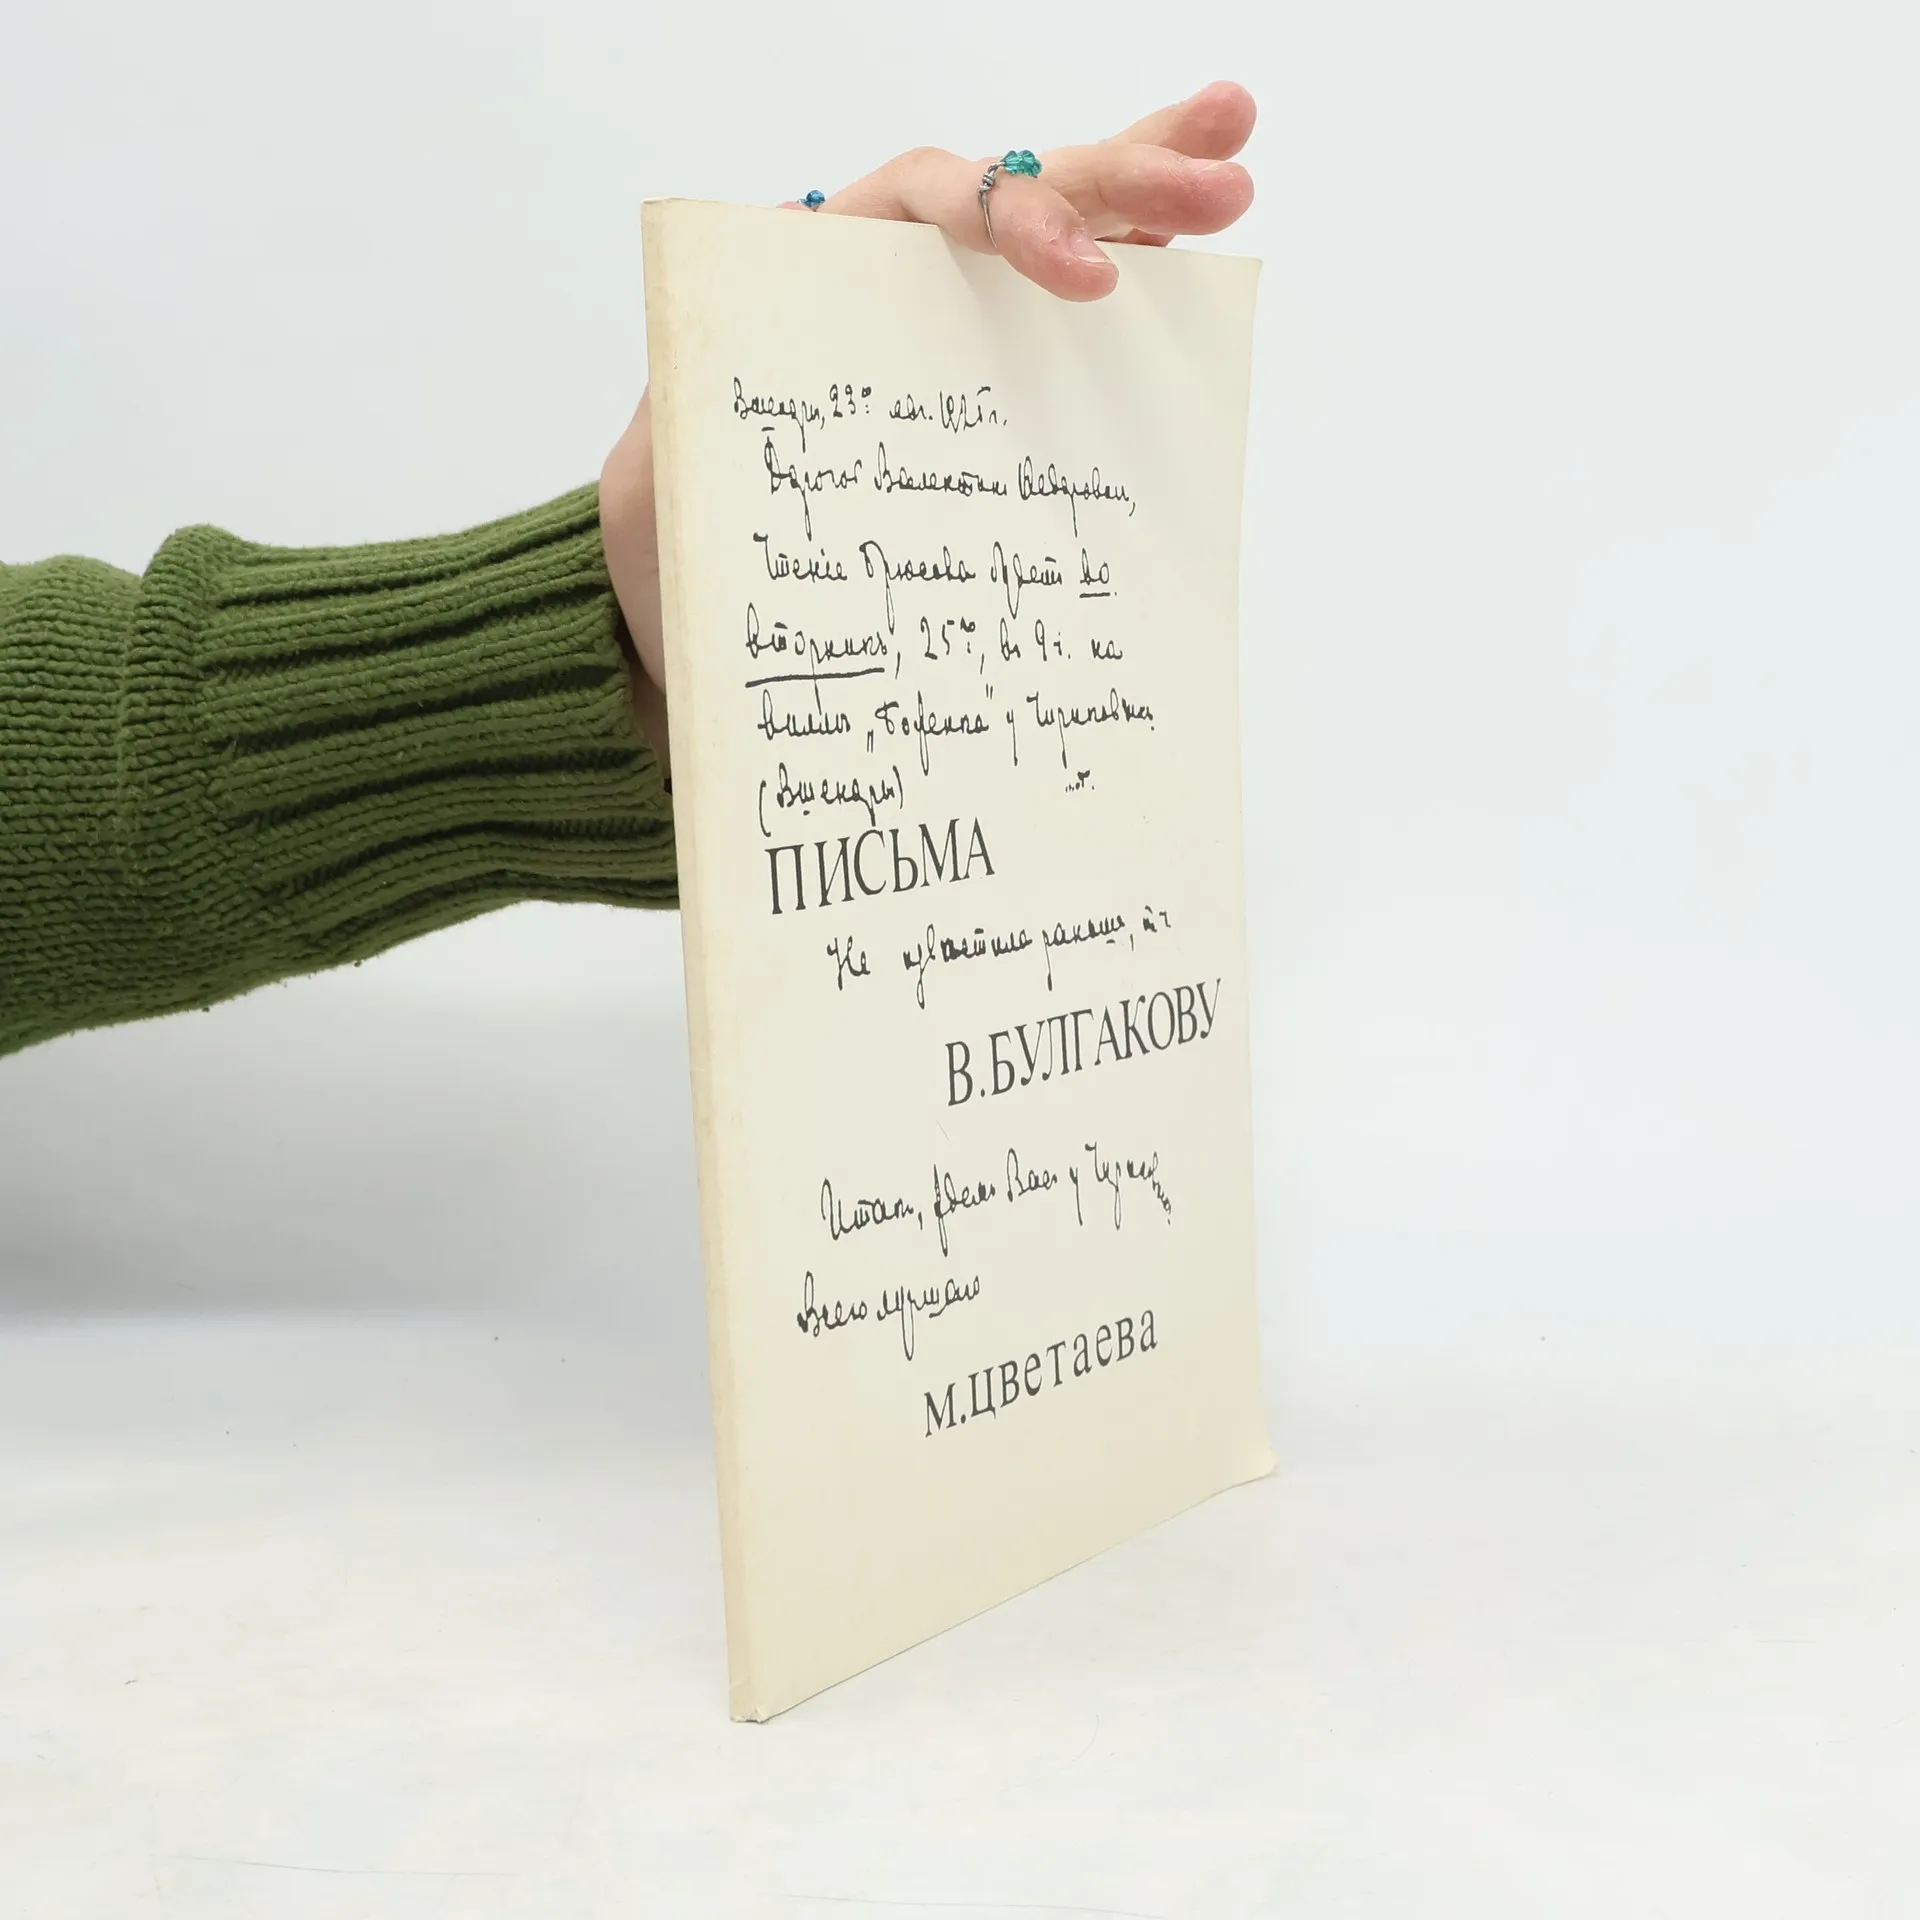 Вшеноры, 23го авг. 1925 г.
Дорогой Валентин Федорович,
Чтеніе Брюсова будетъ во
вторникъ, 25го, въ 9 ч. на
виллѣ „Боженка" у Чириковыхъ
(Вшеноры)
ПИСЬМА
Не извѣстила раньше, т.ч.
В.БУЛГАКОВУ
Итакъ, ждемъ Васъ у Чириковыхъ.
Всего лучшаго
М.ЦВЕТАЕВА